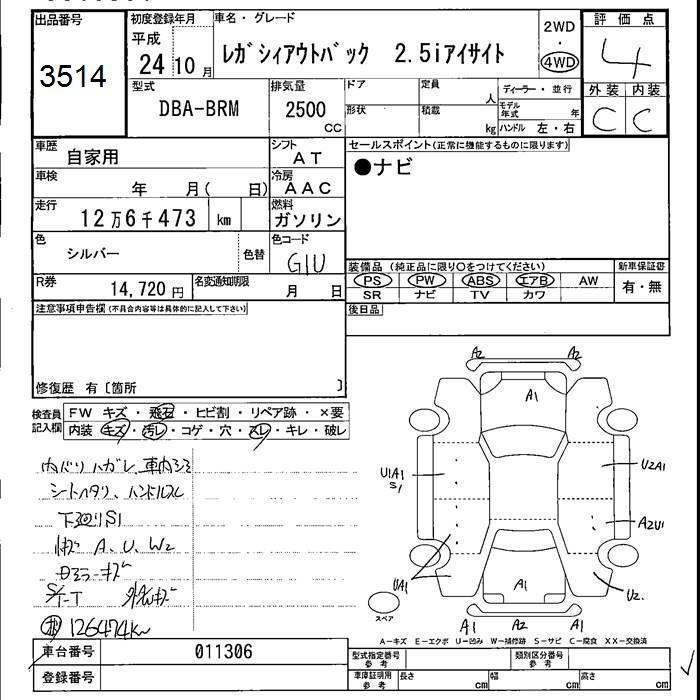 出品番号
3514
初度登録年月
平成
24 10 月
車名・グレード
レガシィアウトバック 2.5iアイサイト
2WD
4WD
評価点
4
外装 内装
C C
型式
DBA-BRM
排気量
2500
CC
ドア
形状
定員
人
積載
kg
ディーラー・並行
モデル年式 年
ハンドル 左・右
車歴
自家用
シフト
AT
車検
年 月( 日)
冷房
AAC
走行
12万6千473 km
燃料
ガソリン
色
シルバー
色替
色コード
G1U
R券
14,720 円
名変通知期限
月 日
セールスポイント(正常に機能するものに限ります)
●ナビ
装備品(純正品に限り○をつけてください)
PS PW ABS エアB AW
SR ナビ TV カワ
新車保証書
有・無
後日品
注意事項申告欄(不具合内容等は具体的に記入して下さい)
修復歴 有〔箇所 〕
検査員記入欄
FW キズ・飛石・ヒビ割・リペア跡・×要
内装 キズ・汚レ・コゲ・穴・スレ・キレ・破レ
内バリハガレ、車内シミ
シートヘタリ、ハンドルスレ
下廻りS1
A、U、W2
126474km
A2 A2
A1
U1A1
S1
U2A1
A2U1
UA1
A1
U2.
スペア
A1 A2 A1
A-キズ E-エクボ U-凹み W-補修跡 S-サビ C-腐食 XX-交換済
車台番号
011306
登録番号
型式指定番号
参考
類別区分番号
参考
車庫証明用
参考
長さ cm 幅 cm 高さ cm